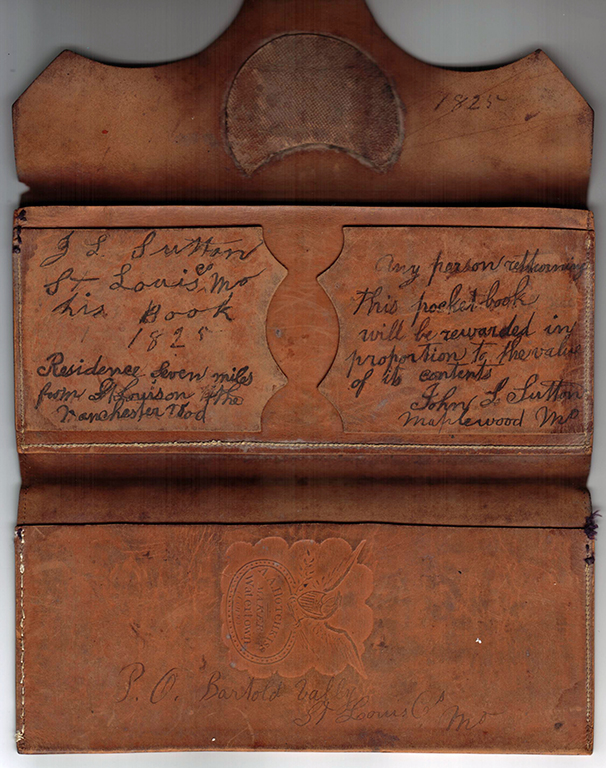 1825
J L Sutton
St Louis Co Mo
his Book
1825
Residence Seven miles
from St Louis on the
Manchester Rod
Any person returning
this pocket-book
will be rewarded in
proportion to the value
of its contents
John L Sutton
Maplewood Mo
P. O. Bartold Valley
St Louis Co
Mo